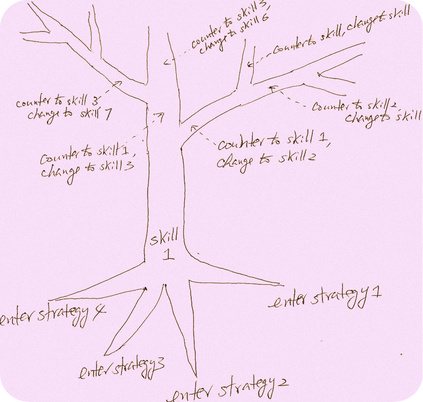 counter to skill 3,
change to skill 6
counter to skill, change to skill
counter to skill 3
change to skill 7
counter to skill 2,
change to skill
counter to skill 1,
change to skill 3
counter to skill 1,
change to skill 2
skill
1
enter strategy 1
enter strategy 4
enter strategy 3
enter strategy 2